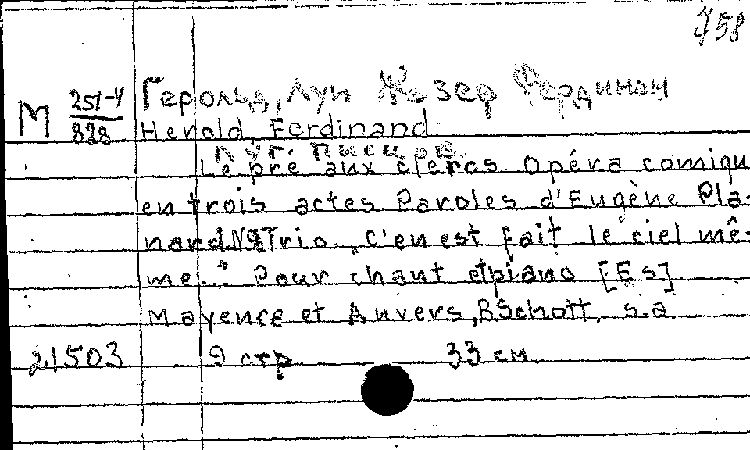 758
М 251-4/828 Герольд, Луи Жозеф Фердинан
Herold, Ferdinand
Луг писцов
Le pré aux clercs Opéra comique
en trois actes Paroles d'Eugène Pla-
nard N9 Trio „C'en est fait le ciel mê-
me.." Pour chant et piano [Es]
Mayence et Anvers, B Schott, s.a
21503 9 стр 33 см